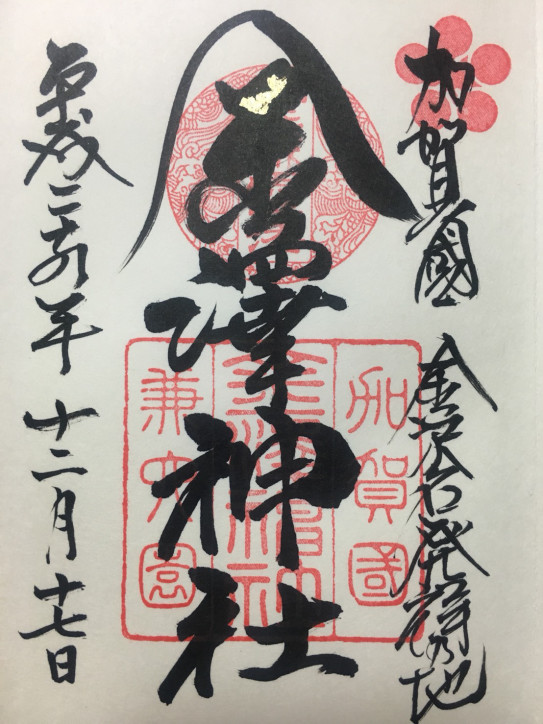 加賀國 金沢名発祥乃地
金澤神社
平成二十九年 十二月十七日
加賀國
兼六園